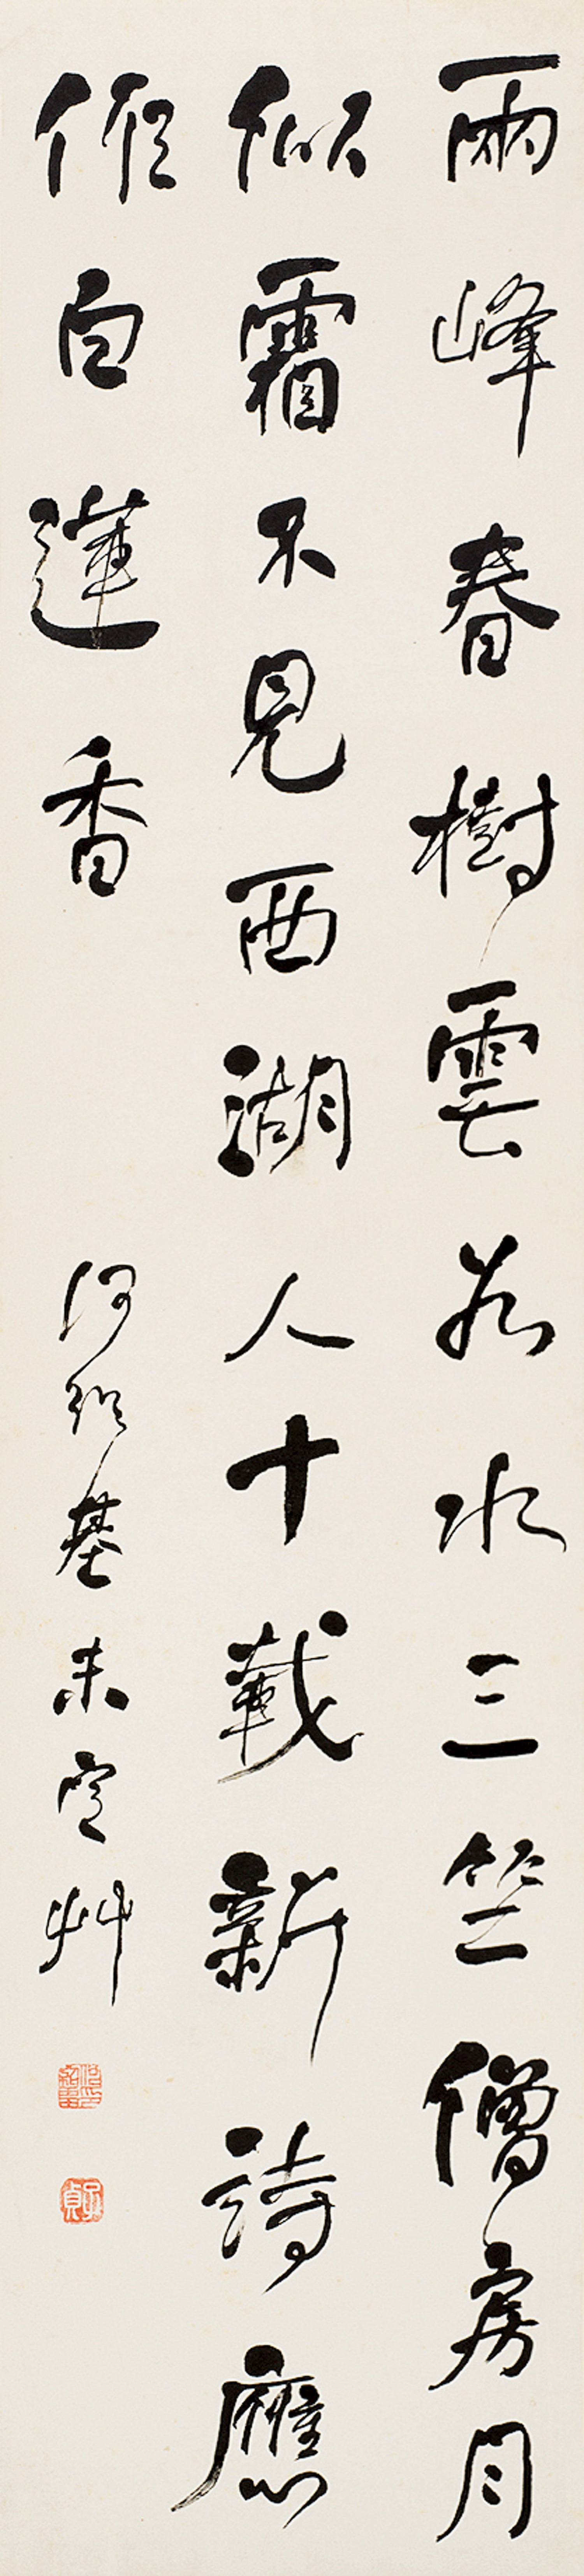 兩峰春樹雲若水三竺僧房月
似霜不見西湖人十載新詩應
假白蓮香
何紹基未定艸
子貞